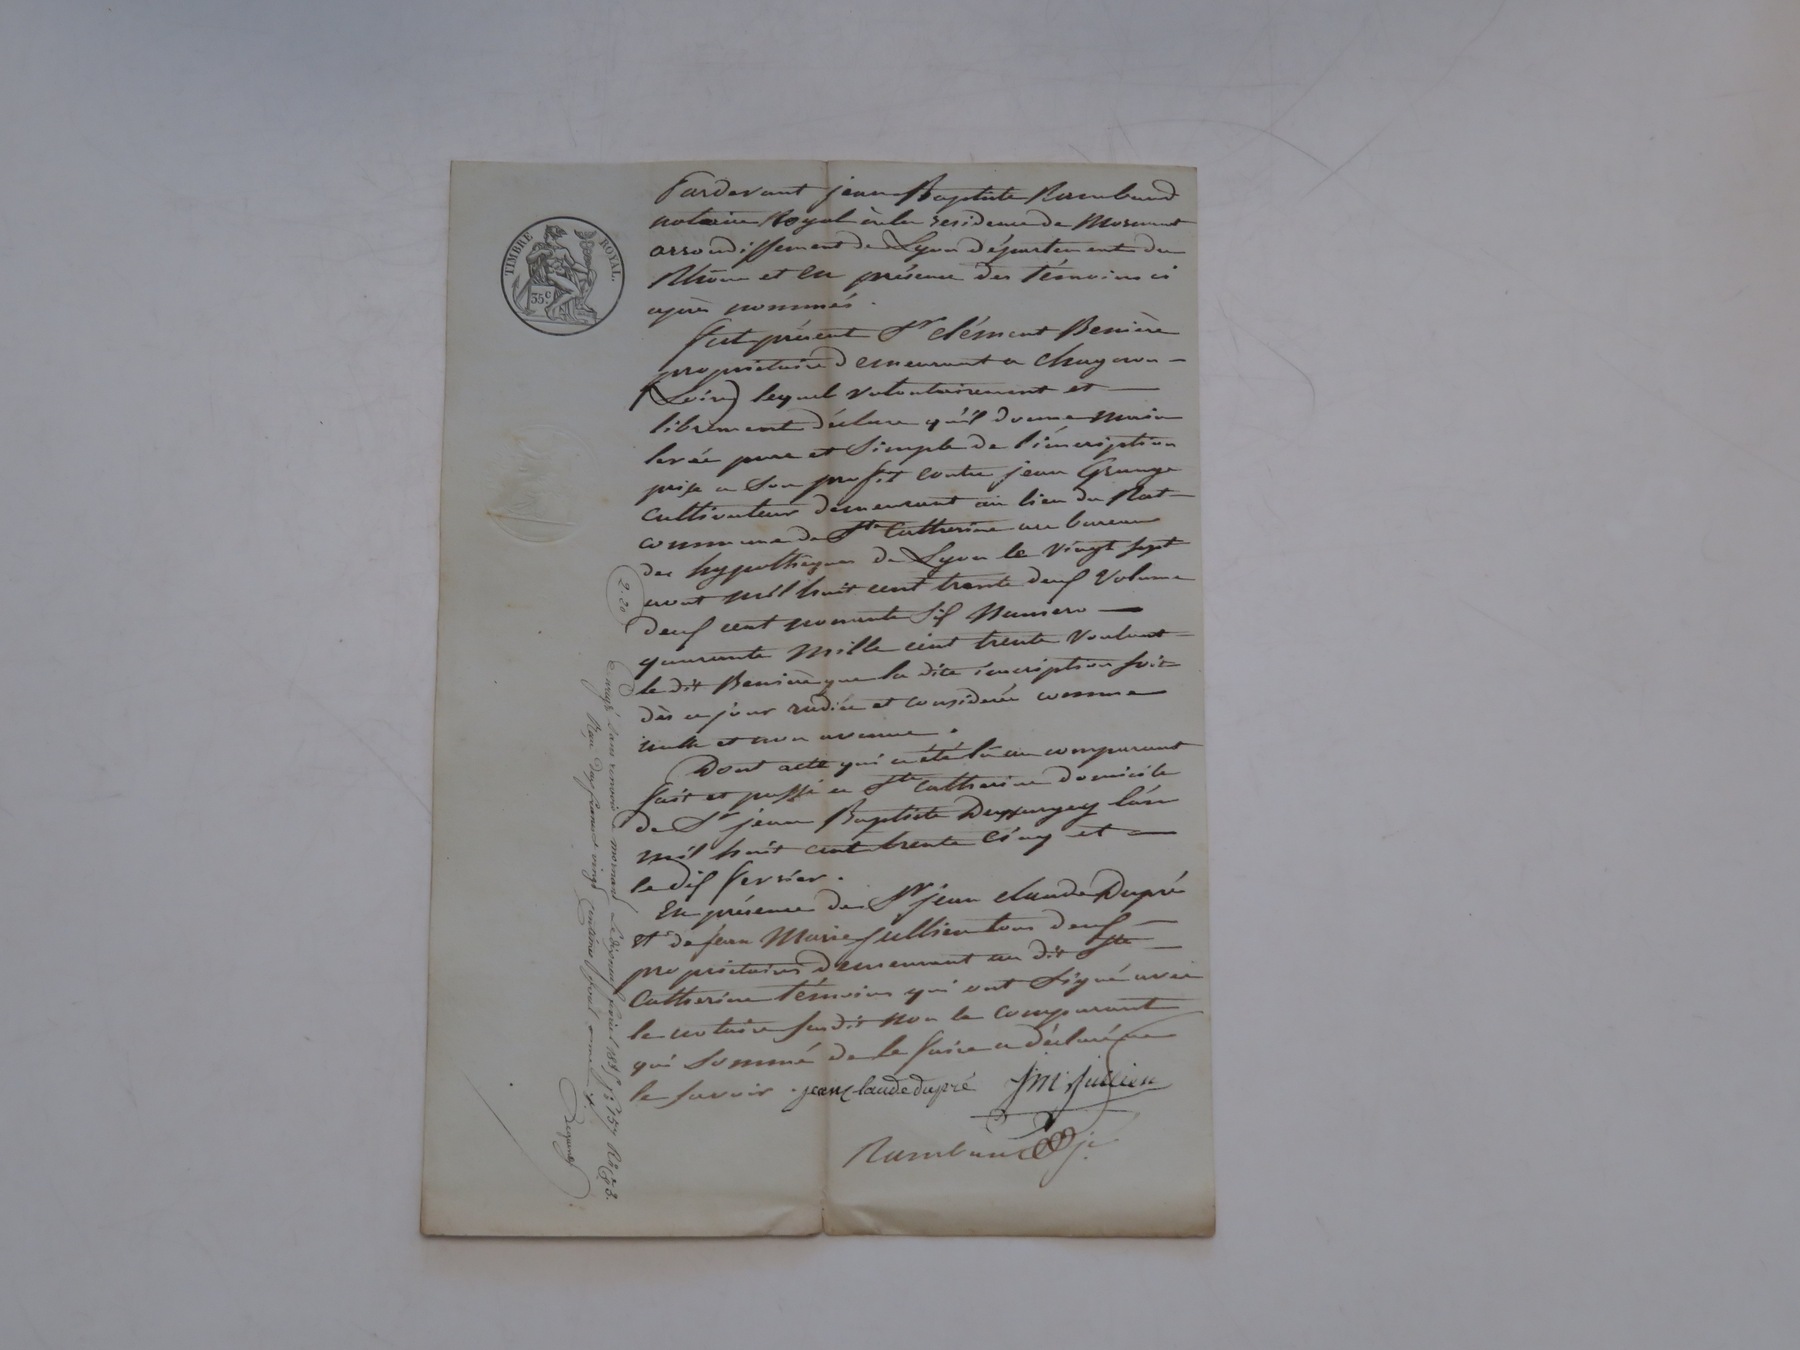 TIMBRE ROYAL.
35c.
Pardevant jean Baptiste Rambaud
notaire Royal à la residence de Mornant
arrondissement de Lyon département du
Rhône et en présence des témoins ci
après nommés.
fut présent Sr clément Benière
propriétaire demeurant a Chagnon
(Loire) lequel volontairement et
librement déclare qu'il donne main
levée pure et simple de l'inscription
prise a son profit contre jean Grange
cultivateur demeurant au lieu du Plat
commune de Ste Catherine au bureau
des hypothèques de Lyon le vingt sept
aout mil huit cent trente deux Volume
deux cent nonante six Numero
quarante mille cent trente voulant
le dit Benière que la dite inscription soit
dès ce jour radiée et considerée comme
nulle et non avenue.
Dont acte qui a été lu au comparant
fait et passé a Ste Catherine domicile
de Sr jean Baptiste l'an
mil huit cent trente cinq et
le dix fevrier.
En présence de Sr jean claude Dupré
et de jean Marie jullien tous deux
propriétaires demeurant au dit Ste
Catherine témoins qui ont signé avec
le notaire susdit non le comparant
qui sommé de le faire a déclaré ne
le savoir.
jean Claude dupré
JM Jullien
Rambaud
2.20
Enregé sans renvoi a mornant le 1835 fo 154 Ro
Reçu deux francs vingt centimes